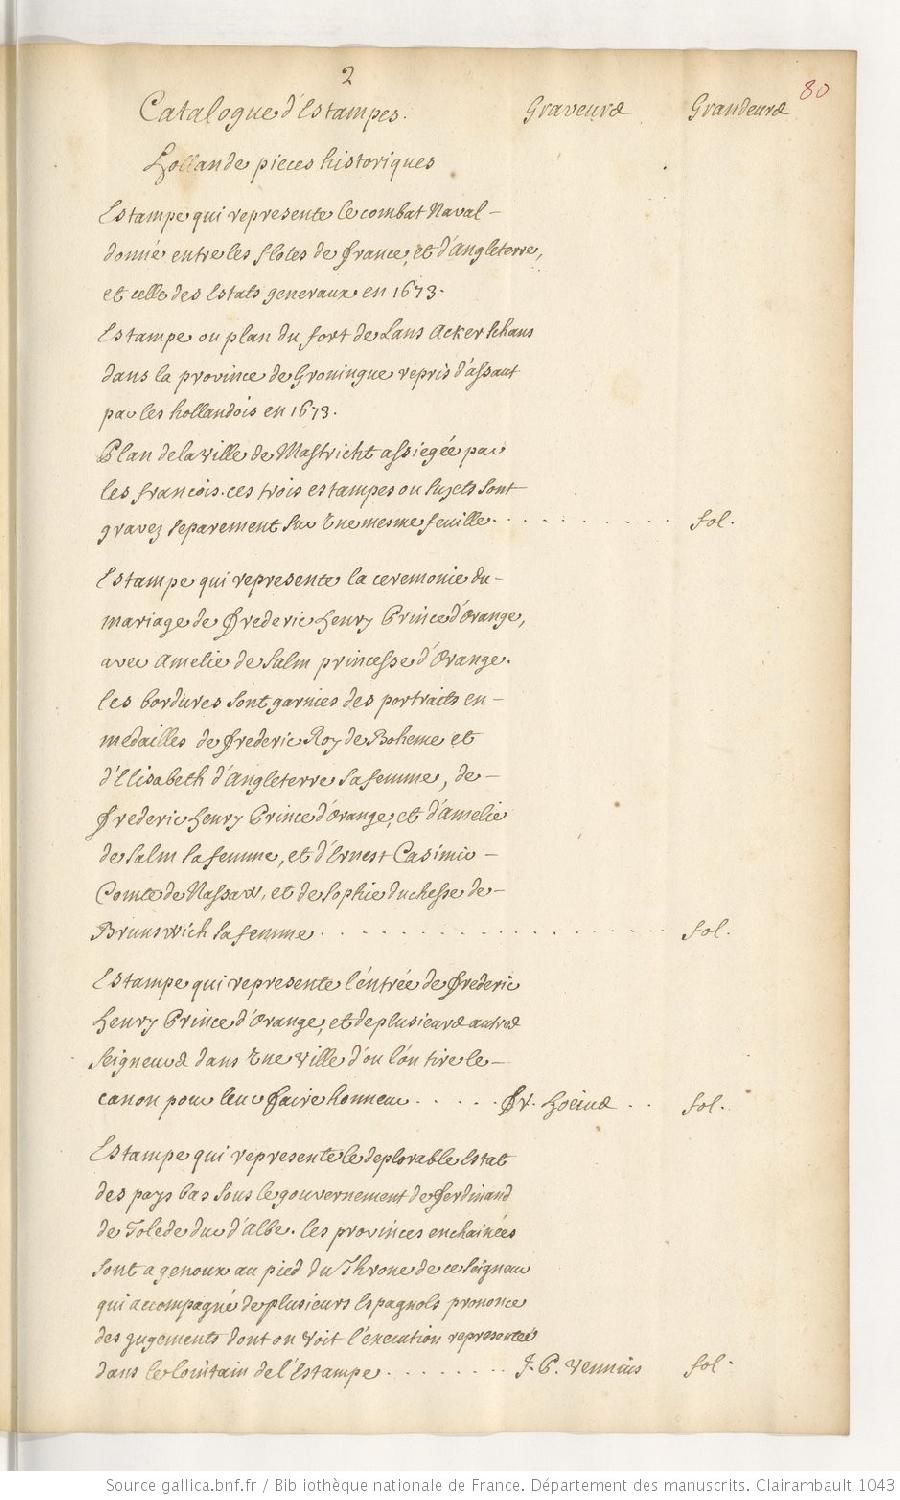 2
80
Catalogue d'Estampes. Graveurs Grandeurs
Hollande pieces historiques
Estampe qui represente le combat Naval -
donné entre les flotes de france, et d'Angleterre,
et celle des Estats generaux en 1673.
Estampe ou plan du fort de Lans Ackerschans
dans la province de Groningue repris d'assaut
par les hollandois en 1673.
Plan de la ville de Mastricht assiegée par
les francois. ces trois estampes ou sujets sont
gravez separement sur Une mesme feuille. . . . . . . . . . . . fol.
Estampe qui represente la ceremonie du -
mariage de Frederic Henry Prince d'Orange,
avec Amelie de Salm princesse d'Orange.
les bordures sont garnies des portraits en -
medailles de Frederic Roy de Boheme et
d'Elisabeth d'Angleterre sa femme, de -
Frederic Henry Prince d'Orange, et d'Amelie
de Salm sa femme, et d'Ernest Casimir -
Comte de Nassaw, et de Sophie duchesse de -
Brunswich sa femme . . . . . . . . . . . . . . . . . . fol.
Estampe qui represente l'éntrée de Frederic
Henry Prince d'Orange, et de plusieurs autres
Seigneurs dans Une Ville d'ou l'ón tire le -
canon pour leur faire honneur . . . . . Fr. Hoeius . . fol.
Estampe qui represente le deplorable Estat
des pays bas sous le gouvernement de Ferdinand
de Tolede duc d'Albe. les provinces enchainées
sont a genoux au pied du Throne de ce Seigneur
qui accompagné de plusieurs Espagnols prononce
des jugements dont on voit l'execution representée
dans le lointain de l'Estampe . . . . . . . . J. P. Vennius fol.
Source gallica.bnf.fr / Bibliothèque nationale de France. Département des manuscrits. Clairambault 1043